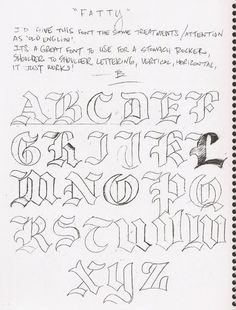 "FATTY"
I'D GIVE THIS FONT THE SAME TREATMENTS/ATTENTION
AS 'OLD ENGLISH'
ITS A GREAT FONT TO USE FOR A STOMACH ROCKER,
SHOULDER TO SHOULDER LETTERING, VERTICAL, HORIZONTAL,
IT JUST WORKS!
B
ABCDEF
GHIJKL
MNOPQ
RSTUVW
XYZ